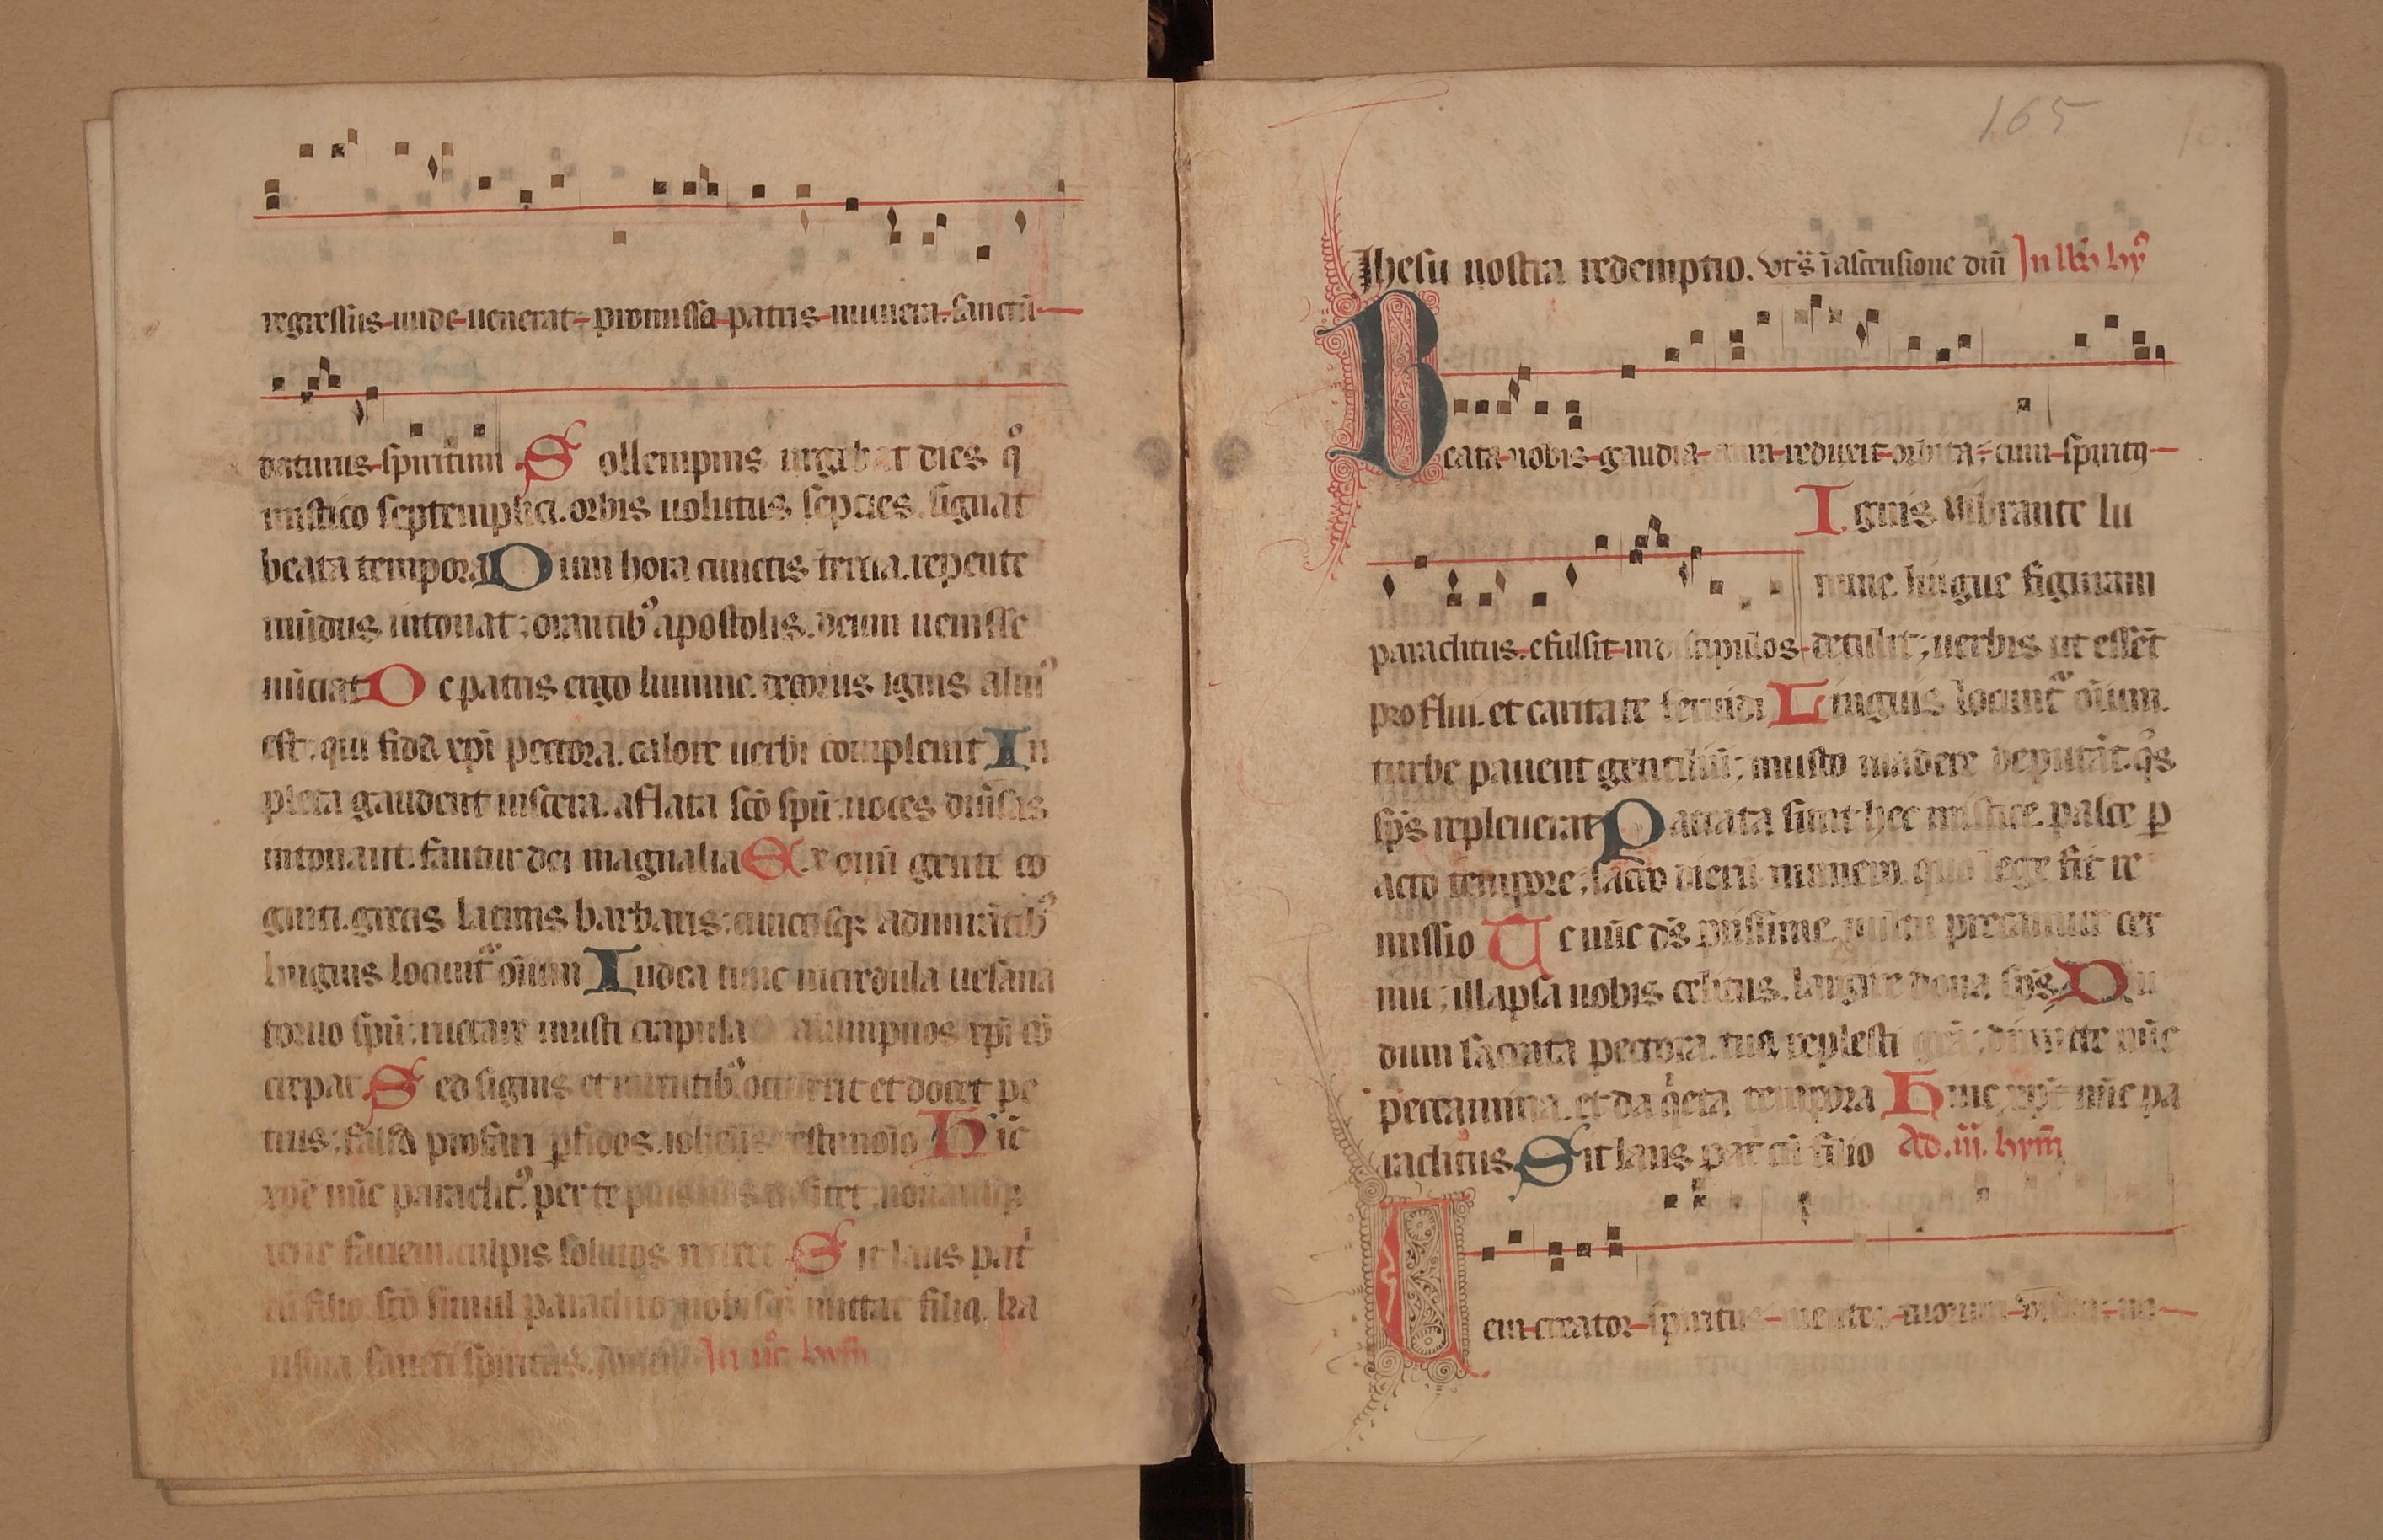 regressus unde uenerat promissa patris munera sanctū
daturus spiritum Sollempnis urgebat dies qͦ
mistico septemplici. orbis uolutus septies. signat
beata tempora Dum hora cunctis tertia. repente
mūdus intonat; orantibꝰ apostolis. deum uenisse
nūciat De patris ergo lumine. decorus ignis almꝰ
est. qui fida xp̄i pectora. calore uerbi compleuit In
pleta gaudent uiscera. aflata sc̄o spū. uoces diūsas
intonant. fantur dei magnalia Ex omī gente co
gniti. grecis latinis barbaris; cunctisqꝫ admirātibꝰ
linguis locunt᷑ oīum Iudea tunc incredula uesana
toruo spū. ructare musti crapula alumpnos xp̄i cō
crepat Sed signis et uirtutibꝰ occurrit et docet pe
trus; falsa profari ꝑfidos. testimōio Hīc
xp̄e nūc paraclitꝰ per te
culpis solutos Sit laus pat᷑
cū filio. sc̄o simul paraclito nobisqꝫ mittat filiꝰ. ka
risma sancti spiritus. In nͦc hym̄
165
Jhesu nostra redemptio. vts̄ ī ascensione dn̄i In lbꝫ hyͫ
Beata nobis gaudia anni reduxit orbita; cum spirituͨ
Ignis vibrante lu
mine lingue figuram
paraclitus. efulsit in discipulos detulit; uerbis ut essēt
proflui. et caritate feruidi Linguis locunt᷑ oīum.
turbe pauent gentiliū; musto madere deputāt. qͦs
sps̄ repleuerat Patrata sunt hec mistice. pasce ꝑ
acto tempore; sacro dierū numero. quo lege fit re
missio Te nūc ds̄ piissime. uultu precamur cer
nuo; illapsa nobis celitus. largire dona sps̄ Du
dum sacrata pectora. tua replesti grā; dimitte nūc
peccamina. et da qͥeta tempora Hinc xp̄e nūc pa
raclitus. Sit laus pat᷑ cū filio Ad. iii. hym̄
Ueni creator spiritus mentes tuorum